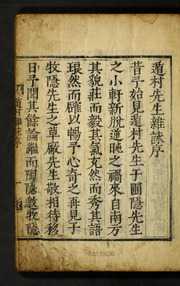 遁村先生雜詠序
昔予始見遁村先生于圃隱先生
之小軒新脫逆旽之禍來自南方
其貌莊而毅其氣充然而秀其語
琅然而確以暢予心奇之再見于
牧隱先生之草廬先生敬相待移
日予聞其餘論繼而圃隱牧隱